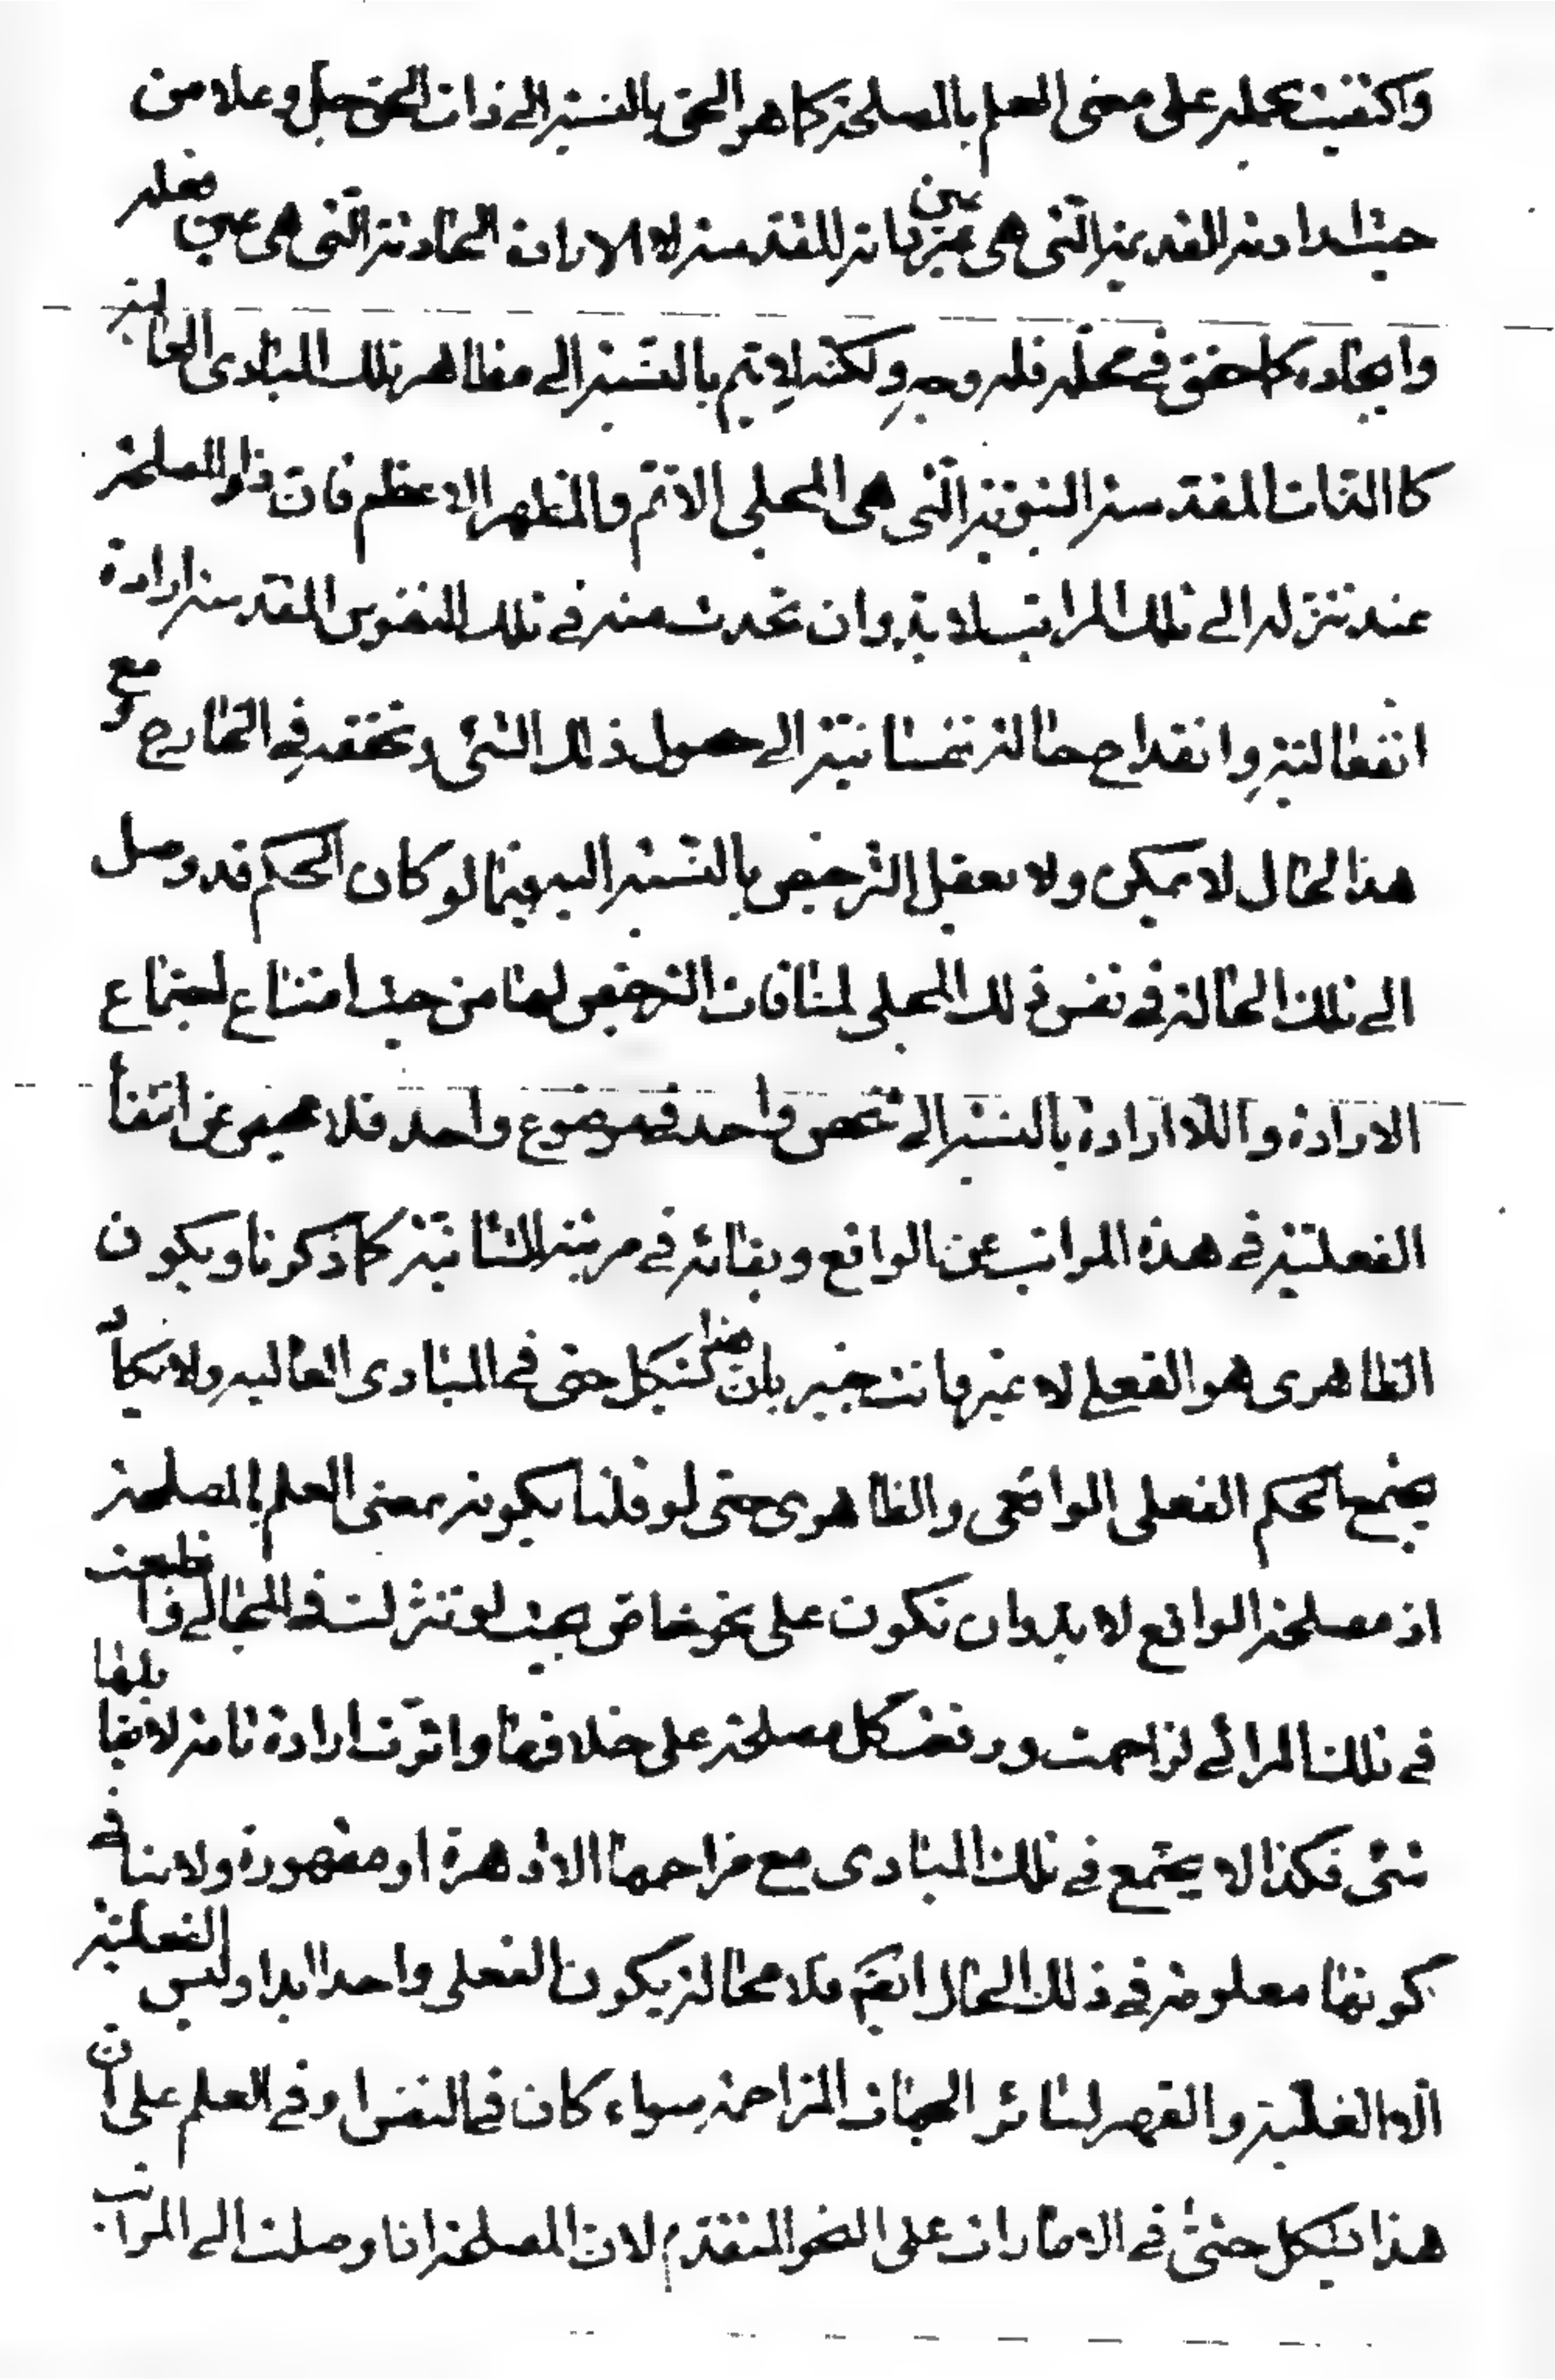 واكتفيت بحمله على معنى العلم بالمصلحة كما هو الحق بالنسبة الى ذات الحق جل وعلا من
حيث ارادته القديمة التي هي عين ذاته المقدسة لا الارادة الحادثة التي هي عين فعله
وايجاده كما حقق في محله فله وجه ولكنه لا يتم بالنسبة الى مظاهر تلك المبادى العالية
كالذات المقدسة النبوية التي هي المجلى الاتم والمظهر الاعظم فان ذا المصلحة
عند تنزله الى تلك المراتب لا بد وان تحدث منه في تلك النفوس المقدسة ارادة
انفعالية وانقداح حالة نفسانية الى حصول ذلك الشئ وتحققه في الخارج ومع
هذا الحال لا يمكن ولا يعقل الترخيص بالنسبة اليه فيما لو كان الحكم قد وصل
الى تلك الحالة في نفس ذلك المجلى لمنافات الترخيص لها من حيث امتناع اجتماع
الارادة واللا ارادة بالنسبة الى شخص واحد في موضوع واحد فلا محيص عن انتفاء
الفعلية في هذه المراتب عن الواقع وبقائه في مرتبة الشانية كما ذكرنا ويكون
الظاهرى هو الفعلي لا غير وانت خبير بان هذا مشكل حتى في المبادى العاليه ولا يكاد
يجتمع الحكم الفعلى الواقعى والظاهرى حتى لو قلنا بكونه بمعنى العلم بالمصلحة
اذ مصلحة الواقع لا بد وان تكون على نحو خاص بحيث لو تنزلت في المجالي وانطبعت
في تلك المرائى لزاحمت ورفضت كل مصلحة على خلافها واثرت ارادة تامة لا يقابلها
شئ فكذا لا يجتمع في تلك المبادى مع مزاحمها الا قاهرة او مقهورة ولا ينافي
كونها معلومة في ذلك الحال ايضا فلا محالة يكون الفعلى واحدا ابدا وليس الفعلية
الا الغلبة والقهر لسائر الجهات المزاحمة سواء كان في النفس او في العلم على ان
هذا يشكل حتى في الامارات على النحو المتقدم لان المصلحة اذا وصلت الى المراتب